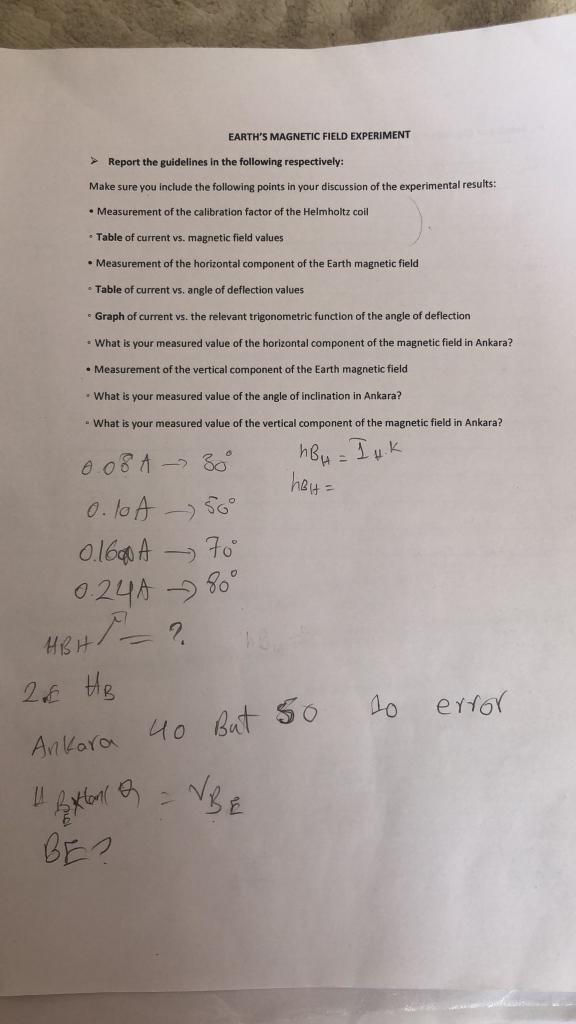 EARTH'S MAGNETIC FIELD EXPERIMENT
➢ Report the guidelines in the following respectively:
Make sure you include the following points in your discussion of the experimental results:
• Measurement of the calibration factor of the Helmholtz coil
◦ Table of current vs. magnetic field values
• Measurement of the horizontal component of the Earth magnetic field
◦ Table of current vs. angle of deflection values
◦ Graph of current vs. the relevant trigonometric function of the angle of deflection
◦ What is your measured value of the horizontal component of the magnetic field in Ankara?
• Measurement of the vertical component of the Earth magnetic field
◦ What is your measured value of the angle of inclination in Ankara?
◦ What is your measured value of the vertical component of the magnetic field in Ankara?
0.08 A → 30° hBH = IH.K
hBH =
0.10A → 50°
0.16 A → 70°
0.24A → 80°
HBH = ?
HB
Ankara 40 But 50 10 error
= VBE
BE?